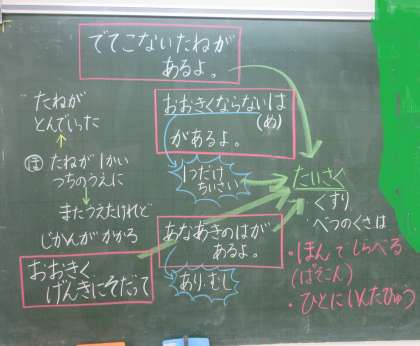 でてこないたねが
あるよ。
たねが
とんでいった
ほ たねが1かい
つちのうえに
またうえたけれど
じかんがかかる
おおきく
げんきにそだって
おおきくならないは
(め)
があるよ。
1つだけ
ちいさい
あなあきのはが
あるよ。
あり、むし
たいさく
・くすり
・べつのくさは
・ほんでしらべる
(ぱそこん)
・ひとにいんたびゅう